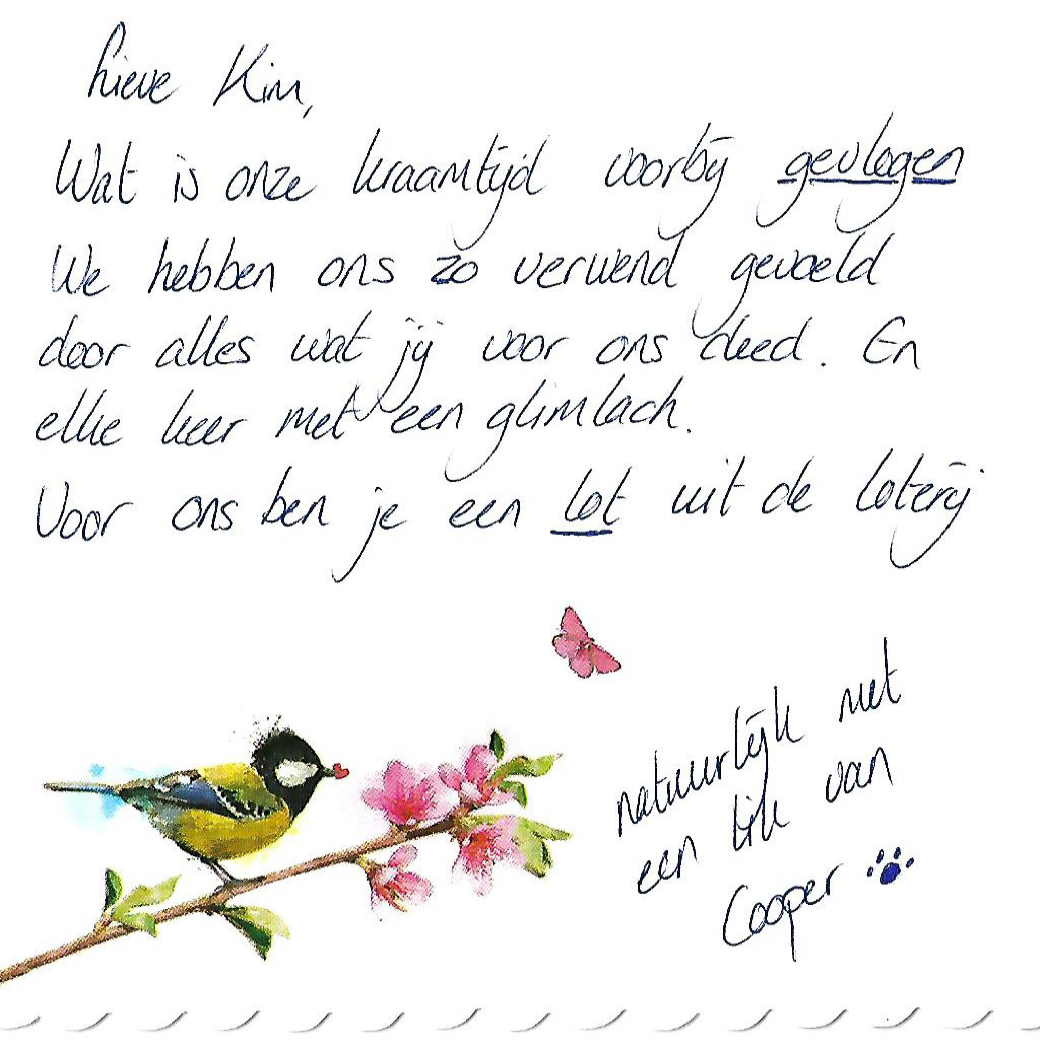 Lieve Kim,
Wat is onze kraamtijd voorbij gevlogen
We hebben ons zo verwend gevoeld
door alles wat jij voor ons deed. En
elke keer met een glimlach.
Voor ons ben je een lot uit de loterij
natuurlijk met
een lik van
Cooper